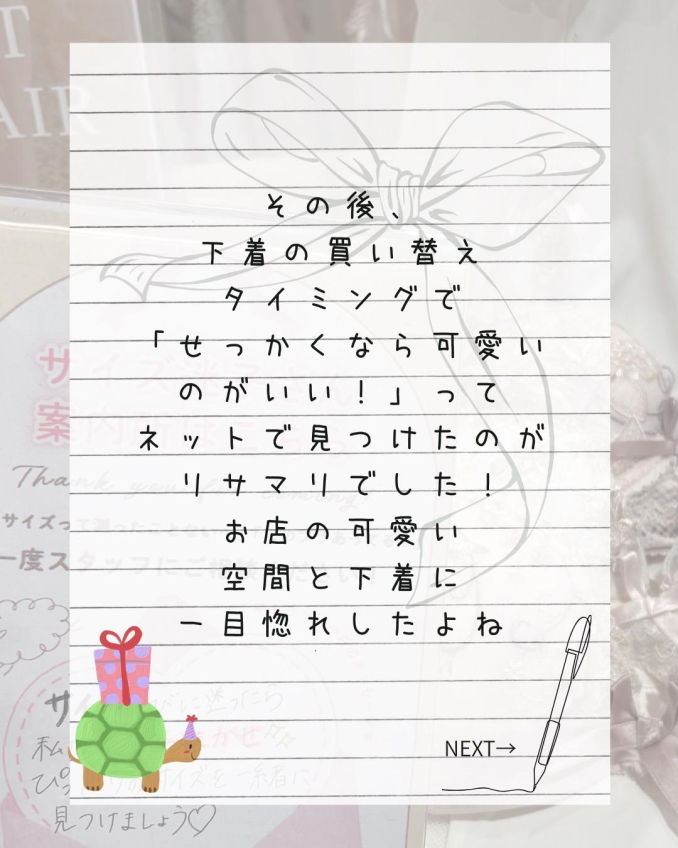 その後、
下着の買い替え
タイミングで
「せっかくなら可愛い
のがいい！」って
ネットで見つけたのが
リサマリでした！
お店の可愛い
空間と下着に
一目惚れしたよね
NEXT→
T
AIR
サイズ
案内所はこちら
Thank you for coming
サイズって測ったことない
一度スタッフにご相談ください
サ
に迷ったら
私
かせ
ぴっ
サイズを一緒に
見つけましょう♡